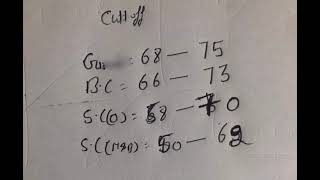 Cutt off
= 68 — 75
B.C = 66 — 73
S.C(O) = 58 — 70
S.C( = 50 — 62